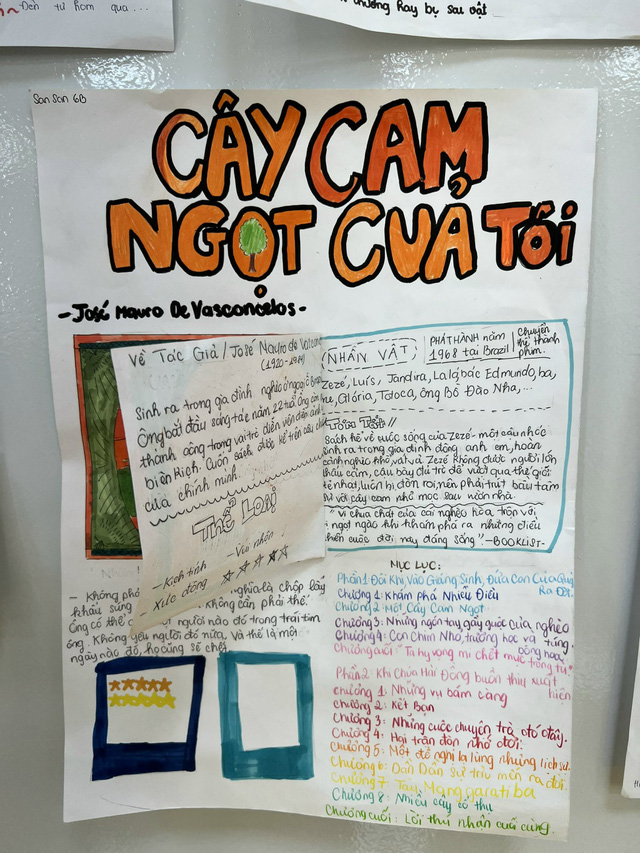 Đến từ hôm qua...
chương Ray bự sau vật
San San 6B
CÂY CAM
NGỌT CUẢ TÔI
- José Mauro De Vasconcelos -
Về Tác Giả / José Mauro de Vascon
(1920 - 1984)
Sinh ra trong gia đình nghèo ở ngoại ô
Ông bắt đầu sáng tác năm 22 tuổi. Ông còn
thành công trong vai trò diễn viên điện ảnh
biên kịch. Cuốn sách được kể trên câu
của chính mình.
Thể Loại
- Kịch tính
- Vui nhộn
- Xúc động
NHÂN VẬT
PHÁT HÀNH năm
1968 tại Brazil
Chuyển
thể thành
phim.
Zezé, Luís, Jandira, Lalá, bác Edmundo, ba,
mẹ, Glória, Totoca, ông Bồ Đào Nha,...
Tóm Tắt
Sách kể về cuộc sống của Zezé - một cậu nhóc
sinh ra trong gia đình đông anh em, hoàn
cảnh nghèo khó vất vả. Zezé không được người lớn
thấu cảm, cậu bày đủ trò để vượt qua thế giới
tẻ nhạt, luôn bị đòn roi, nên phải trút bầu tâm
sự với cây cam nhỏ mọc sau vườn nhà.
"Vị chua chát của cái nghèo hòa trộn với
vị ngọt ngào khi khám phá ra những điều
khiến cuộc đời này đáng sống". - BOOKLIST -
- Không phả nghĩa là chộp lấy
khẩu súng không cần phải thế.
Ông có thể người nào đó trong trái tim
ông. Không yêu người đó nữa. Và thế là một
ngày nào đó, họ cũng sẽ chết.
MỤC LỤC:
Phần 1: Đôi Khi Vào Giáng Sinh, Đứa Con Của Quỷ
Ra Đời.
Chương 1: Khám Phá Nhiều Điều
Chương 2: Một Cây Cam Ngọt
Chương 3: Những ngón tay gầy guộc của nghèo
Chương 4: Con Chim Nhỏ, trường học và từng
bông hoa
Chương cuối: "Ta hy vọng mi chết mục trong tù."
Phần 2: Khi Chúa Hài Đồng buồn thiu xuất
hiện
Chương 1: Những vụ bám càng
Chương 2: Kết Bạn
Chương 3: Những cuộc chuyện trò đó đây.
Chương 4: Hai trận đòn nhớ đời.
Chương 5: Một đề nghị lạ lùng nhưng lịch sự.
Chương 6: Dần Dần Sự trìu mến ra đời.
Chương 7: Tàu Mangaratiba
Chương 8: Nhiều cây cổ thụ
Chương cuối: Lời thú nhận cuối cùng.